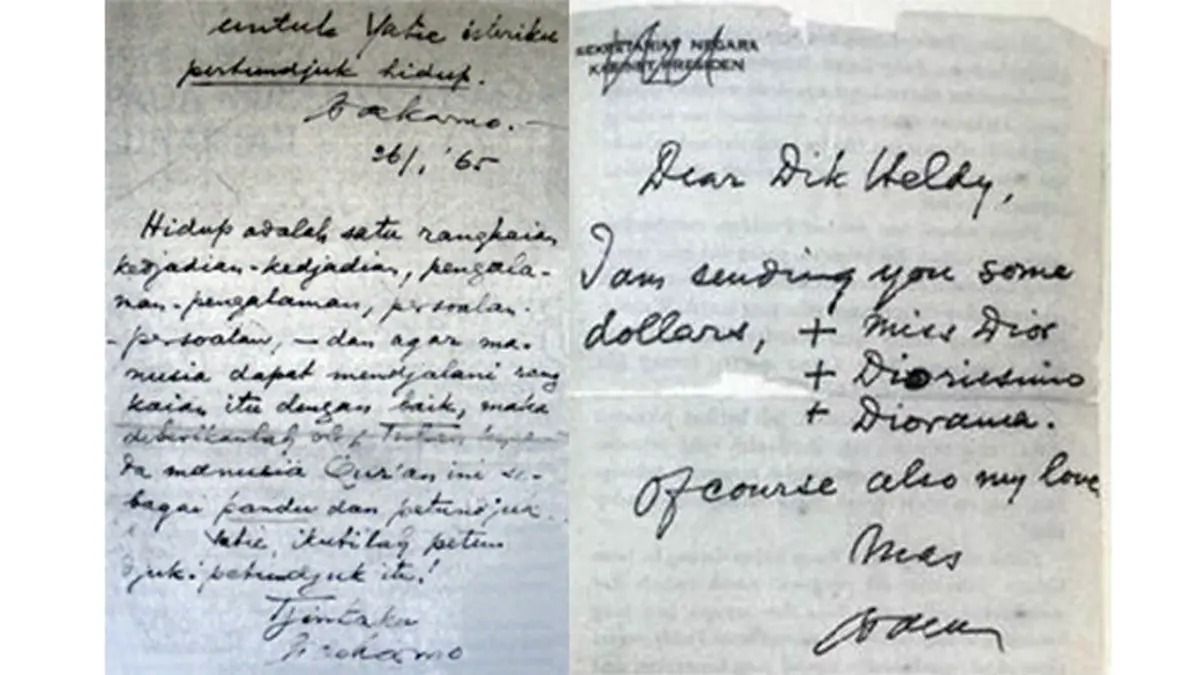 untuk Yatie isteriku
pertundjuk hidup.
Soekarno.-
26/1, '65
Hidup adalah satu rangkaian
kedjadian-kedjadian, pengala-
man-pengalaman, persoalan-
-persoalan, - dan agar ma-
nusia dapat mendjalani rang
kaian itu dengan baik, maka
diberikanlah oleh Tuhan kepa-
da manusia Qur'an ini se-
bagai pandu dan petundjuk.
Yatie, ikutilah petun
djuk-petundjuk itu!
Tjintaku
Soekarno
SEKRETARIAT NEGARA
KABINET PRESIDEN
Dear Dik Heldy,
I am sending you some
dollars, + Miss Dior
+ Dioriesimo
+ Diorama.
Of course also my love
Mas